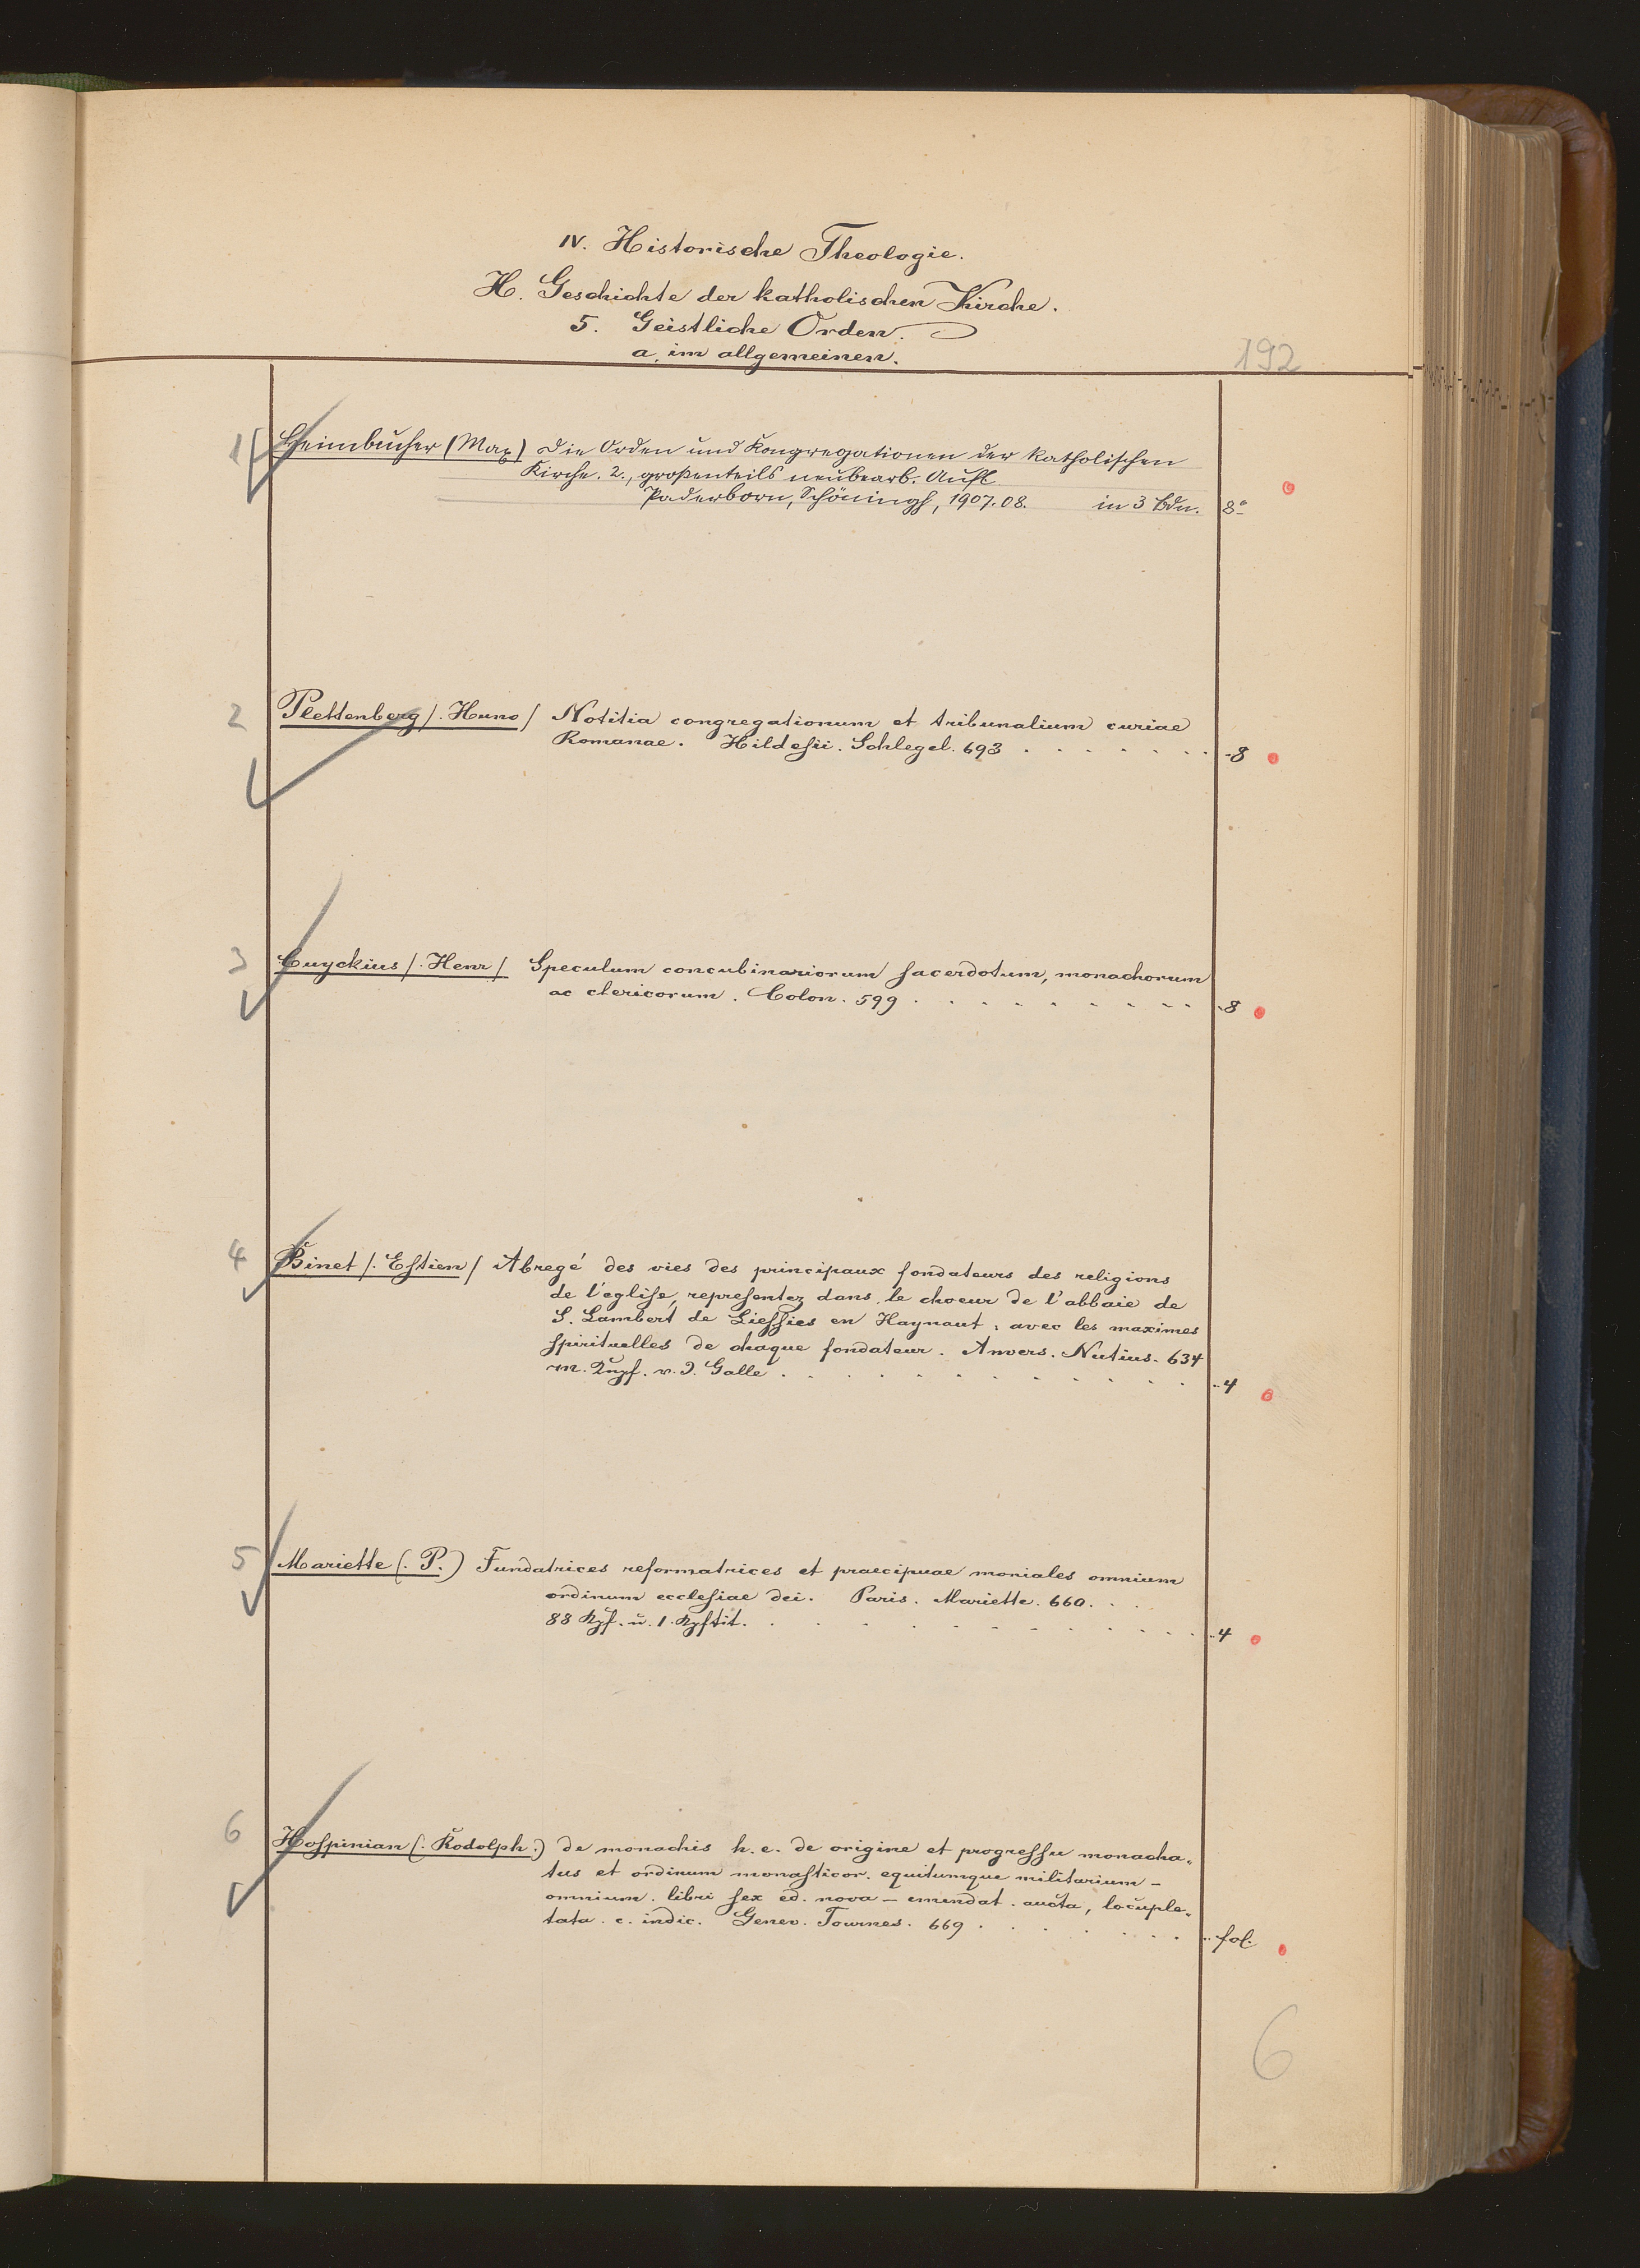 IV. Historische Theologie.
H. Geschichte der katholischen Kirche.
5. Geistliche Orden.
a, im allgemeinen.
192
1 Heimbucher (Max) Die Orden und Kongregationen der katholischen
Kirche. 2., großenteils neubearb. Aufl.
Paderborn, Schöningh, 1907.08. in 3 Bdn. 8°
2 Plettenberg /. Huno / Notitia congregationum et tribunalium curiae
Romanae. Hildesii. Schlegel. 693 . . . . . . . 8
3 Cuyckius /. Henr / Speculum concubinariorum sacerdotum, monachorum
ac clericorum. Colon. 599 . . . . . . . . . 8
4 Binet /. Estien / Abregé des vies des principaux fondateurs des religions
de l'église, representez dans le choeur de l'abbaie de
S. Lambert de Liessies en Haynaut, avec les maximes
spirituelles de chaque fondateur. Anvers. Nutius. 634
m. Kupf. v. J. Galle . . . . . . . . . . . . 4
5 Mariette (. P.) Fundatrices reformatrices et praecipuae moniales omnium
ordinum ecclesiae dei. Paris. Mariette. 660. . .
88 Kpf. u. 1. Kpftit. . . . . . . . . . . . 4
6 Hospinian (. Rodolph.) de monachis h. e. de origine et progressu monacha„
tus et ordinum monasticor. equitumque militarium –
omnium. libri sex ed. nova – emendat. aucta, locuple„
tata. c. indic. Genev. Tournes. 669 . . . . . . fol.
6